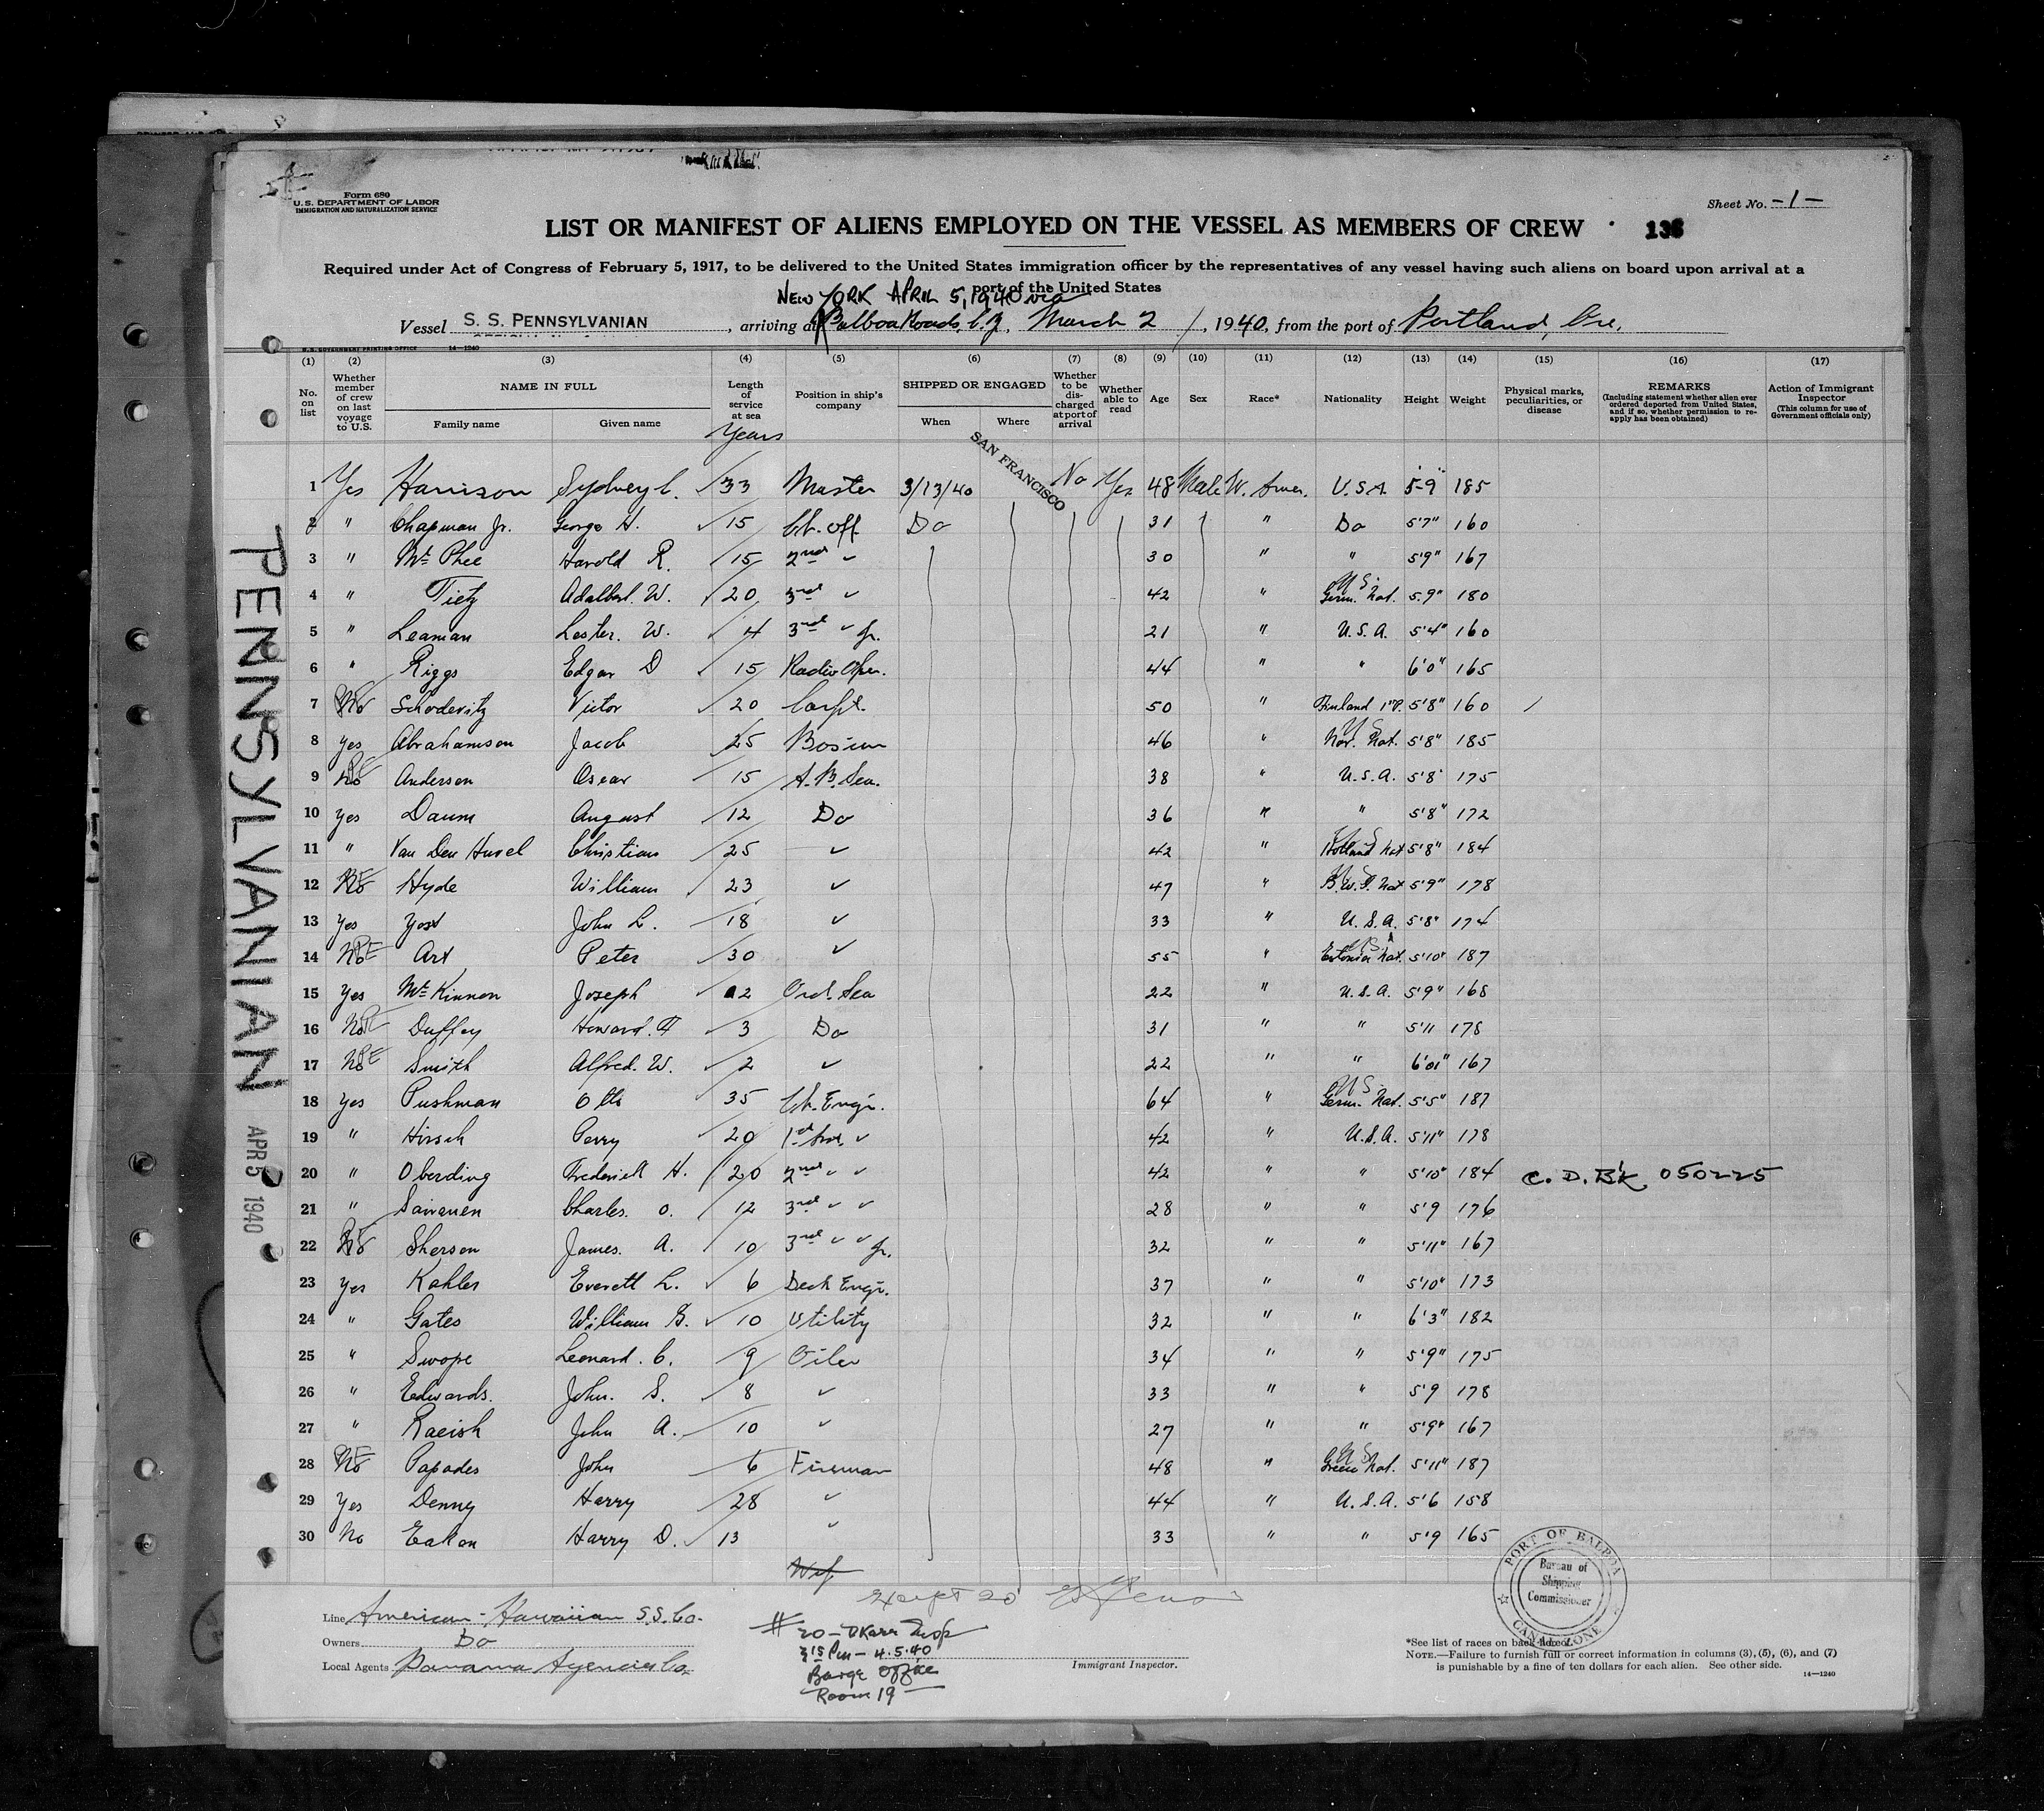 Form 680
U.S. DEPARTMENT OF LABOR
IMMIGRATION AND NATURALIZATION SERVICE
Sheet No. -1-
LIST OR MANIFEST OF ALIENS EMPLOYED ON THE VESSEL AS MEMBERS OF CREW 136
Required under Act of Congress of February 5, 1917, to be delivered to the United States immigration officer by the representatives of any vessel having such aliens on board upon arrival at a
port of the United States
NEW YORK APRIL 5, 1940 via
Vessel S. S. PENNSYLVANIAN, arriving at Balboa Roads, C.Z., March 2 , 1940, from the port of Portland, Ore.
14-1240
(1) (2) (3) (4) (5) (6) (7) (8) (9) (10) (11) (12) (13) (14) (15) (16) (17)
No. on list
Whether member of crew on last voyage to U.S.
NAME IN FULL
Family name Given name
Length of service at sea
Years
Position in ship's company
SHIPPED OR ENGAGED
When Where
Whether to be discharged at port of arrival
Whether able to read
Age Sex Race* Nationality Height Weight
Physical marks, peculiarities, or disease
REMARKS
(Including statement whether alien ever ordered deported from United States, and if so, whether permission to reapply has been obtained)
Action of Immigrant Inspector
(This column for use of Government officials only)
SAN FRANCISCO
1 Yes Harrison Sydney C. 33 Master 3/13/40 No Yes 48 Male W. Amer. U.S.A. 5-9" 185
2 " Chapman Jr. George H. 15 Ch. Off. Do 31 " Do 5'7" 160
3 " McPhee Harold R. 15 2nd ✓ 30 " " 5'9" 167
4 " Tietz Adalbert. W. 20 3rd ✓ 42 " U.S. Germ. Nat. 5.9" 180
5 " Leaman Lester. W. 4 3rd ✓ Jr. 21 " U.S.A. 5'4" 160
6 " Riggs Edgar D 15 Radio Oper. 44 " " 6'0" 165
7 No Schodevitz Victor 20 Carpt. 50 " Finland 1stP. 5'8" 160
8 Yes Abrahamson Jacob 25 Bosun 46 " U.S. Nor. Nat. 5'8" 185
9 No Anderson Oscar 15 A.B. Sea. 38 " U.S.A. 5'8" 175
10 Yes Daum August 12 Do 36 " " 5'8" 172
11 " Van Den Huvel Christian 25 ✓ 42 " Holland Nat 5'8" 184
12 No Hyde William 23 ✓ 47 " B.W.I. Nat 5'9" 178
13 Yes Yost John L. 18 ✓ 33 " U.S.A. 5'8" 174
14 No RE Art Peter 30 ✓ 55 " Estonia Nat. 5'10" 187
15 Yes McKinnon Joseph 2 Ord. Sea 22 " U.S.A. 5'9" 168
16 No RE Duffey Howard. F 3 Do 31 " " 5'11 178
17 No RE Smith Alfred. W. 2 ✓ 22 " " 6'01" 167
18 Yes Pushman Otto 35 Ch. Engr. 64 " U.S. Germ. Nat. 5'5" 187
19 " Hirsch Perry 20 1st ✓ 42 " U.S.A. 5'11" 178
20 " Oberding Frederick H. 20 2nd ✓ ✓ 42 " " 5'10" 184 C. D. B'K 050225
21 " Charles. O. 12 3rd ✓ ✓ 28 " " 5'9 176
22 No Sherson James. A. 10 3rd ✓ ✓ Jr. 32 " " 5'11" 167
23 Yes Kahler Everett L. 6 Deck Engr. 37 " " 5'10" 173
24 " Gates William G. 10 Utility 32 " " 6'3" 182
25 " Swope Leonard. C. 9 Oiler 34 " " 5'9" 175
26 " Edwards. John. S. 8 ✓ 33 " " 5'9 178
27 " Raeish John A. 10 ✓ 27 " " 5'9" 167
28 No Papades John 6 Fireman 48 " U.S. Greece Nat. 5'11" 187
29 Yes Denney Harry 28 ✓ 44 " U.S.A. 5'6 158
30 No Eaton Harry D. 13 ✓ 33 " " 5'9 165
PENNSYLVANIAN APR 5 1940
Line American-Hawaiian S.S. Co.
Owners Do
Local Agents Panama Agencies Co.
Except 20
# 20 - OKarr Insp
3 15 Pm - 4.5.40
Barge Office
Room 19
Immigrant Inspector.
PORT OF BALBOA
Bureau of
Shipping
Commissioner
CANAL ZONE
*See list of races on back hereof.
NOTE.—Failure to furnish full or correct information in columns (3), (5), (6), and (7)
is punishable by a fine of ten dollars for each alien. See other side.
14-1240